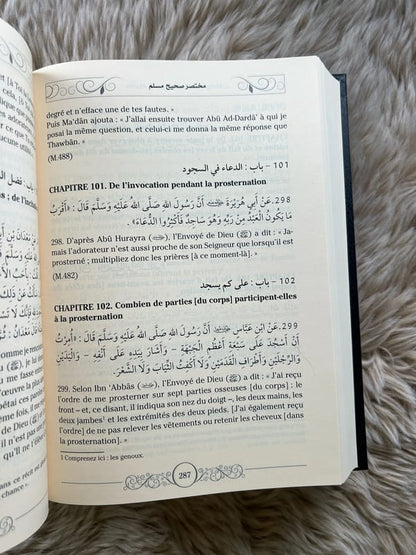 مختصر صحيح مسلم
degré et n'efface une de tes fautes. »
Puis Ma'dân ajouta : « J'allai ensuite trouver Abû Ad-Dardâ' à qui je
posai la même question, et celui-ci me donna la même réponse que
Thawbân. »
(M.488)
101 - باب : الدعاء في السجود
CHAPITRE 101. De l'invocation pendant la prosternation
298. عَنْ أَبِي هُرَيْرَةَ أَنَّ رَسُولَ اللهِ صَلَّى اللهُ عَلَيْهِ وَسَلَّمَ قَالَ : «أَقْرَبُ
مَا يَكُونُ الْعَبْدُ مِنْ رَبِّهِ وَهُوَ سَاجِدٌ فَأَكْثِرُوا الدُّعَاءَ».
298. D'après Abû Hurayra (), l'Envoyé de Dieu (ﷺ) a dit : « Ja-
mais l'adorateur n'est aussi proche de son Seigneur que lorsqu'il est
prosterné ; multipliez donc les prières [à ce moment-là]. »
(M.482)
102 - باب : على كم يسجد
CHAPITRE 102. Combien de parties [du corps] participent-elles
à la prosternation
299. عَنِ ابْنِ عَبَّاسٍ أَنَّ رَسُولَ اللهِ صَلَّى اللهُ عَلَيْهِ وَسَلَّمَ قَالَ : «أُمِرْتُ
أَنْ أَسْجُدَ عَلَى سَبْعَةِ أَعْظُمٍ الْجَبْهَةِ – وَأَشَارَ بِيَدِهِ عَلَى أَنْفِهِ – وَالْيَدَيْنِ
وَالرِّجْلَيْنِ وَأَطْرَافِ الْقَدَمَيْنِ وَلَا أَكْفِتُ الثِّيَابَ وَلَا الشَّعْرَ.
299. Selon Ibn 'Abbâs (), l'Envoyé de Dieu (ﷺ) a dit : « J'ai reçu
l'ordre de me prosterner sur sept parties osseuses [du corps] : le
front – et, ce disant, il indiqua son nez du doigt –, les deux mains, les
deux jambes¹ et les extrémités des deux pieds. [J'ai également reçu
l'ordre] de ne pas relever les vêtements ou retenir les cheveux [dans
la prosternation]. »
1 Comprenez ici : les genoux.
287